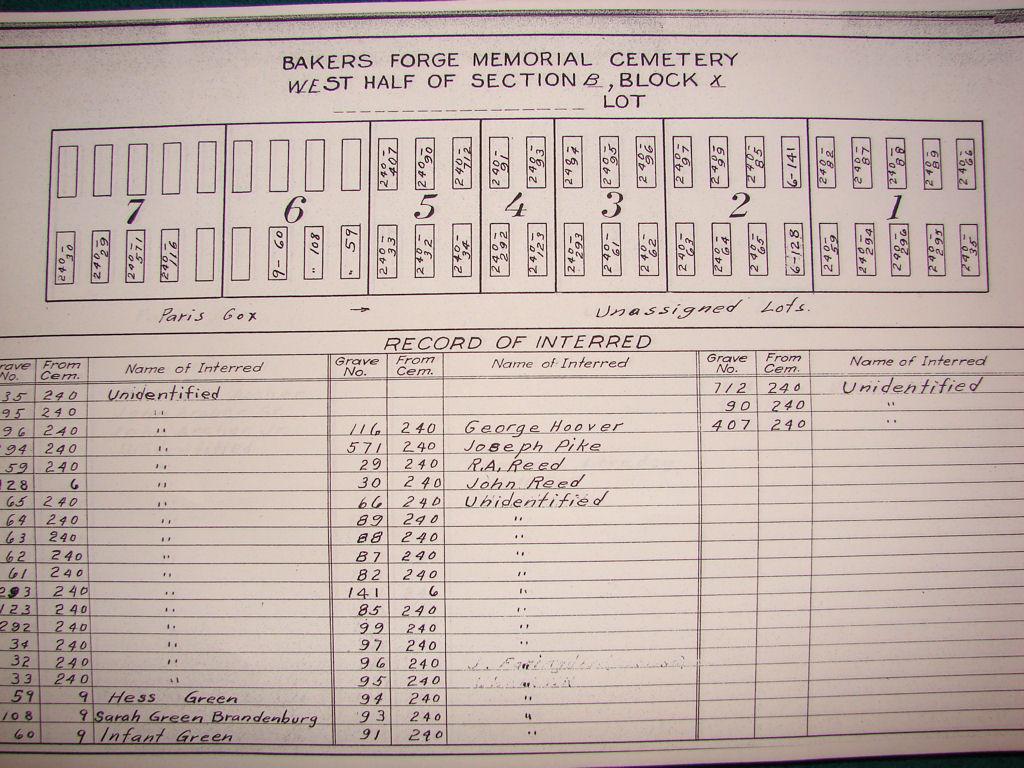 BAKERS FORGE MEMORIAL CEMETERY
WEST HALF OF SECTION B, BLOCK X
LOT
240-407 240-90 240-712 240-91 240-93 240-94 240-95 240-96 240-97 240-99 240-85 6-141 240-82 240-87 240-88 240-89 240-66
7 6 5 4 3 2 1
240-30 240-29 240-571 240-116 9-60 " 108 " 59 240-33 240-32 240-34 240-292 240-123 240-293 240-61 240-62 240-63 240-64 240-65 6-128 240-59 240-294 240-296 240-295 240-35
Paris Cox → Unassigned Lots.
RECORD OF INTERRED
rave No. From Cem. Name of Interred Grave No. From Cem. Name of Interred Grave No. From Cem. Name of Interred
35 240 Unidentified 712 240 Unidentified
95 240 " 90 240 "
96 240 " 116 240 George Hoover 407 240 "
94 240 " 571 240 Joseph Pike
59 240 " 29 240 R.A. Reed
128 6 " 30 240 John Reed
65 240 " 66 240 Unidentified
64 240 " 89 240 "
63 240 " 88 240 "
62 240 " 87 240 "
61 240 " 82 240 "
293 240 " 141 6 "
123 240 " 85 240 "
292 240 " 99 240 "
34 240 " 97 240 "
32 240 " 96 240 "
33 240 " 95 240 "
59 9 Hess Green 94 240 "
108 9 Sarah Green Brandenburg 93 240 "
60 9 Infant Green 91 240 "